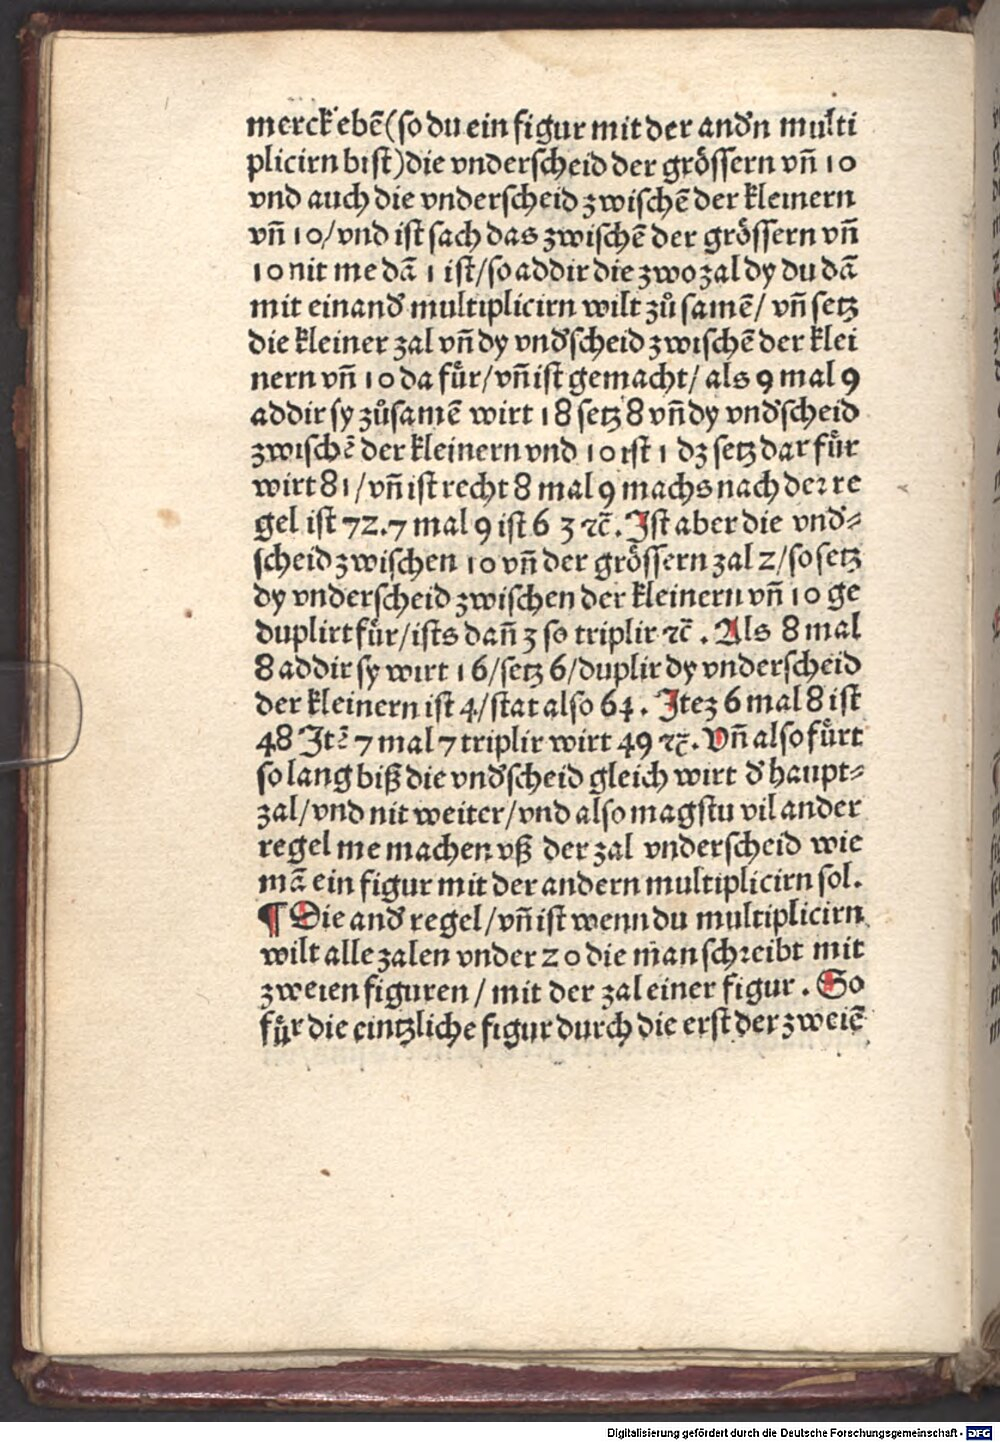 merck ebē (so du ein figur mit der andn̄ multi
plicirn bist) die vnderscheid der grössern vn̄ 10
vnd auch die vnderscheid zwischē der kleinern
vn̄ 10/ vnd ist sach das zwischē der grössern vn̄
10 nit me dā 1 ist/ so addir die zwo zal dy du dā
mit einand' multiplicirn wilt zů samē/ vn̄ setz
die kleiner zal vn̄ dy vnd'scheid zwischē der klei
nern vn̄ 10 da für/ vn̄ ist gemacht/ als 9 mal 9
addir sy zůsamē wirt 18 setz 8 vn̄ dy vnd'scheid
zwischē der kleinern vnd 10 ist 1 dz setz dar für
wirt 81/ vn̄ ist recht 8 mal 9 machs nach der re
gel ist 72. 7 mal 9 ist 6 3 ⁊c̄. Ist aber die vnd'⸗
scheid zwischen 10 vn̄ der grössern zal 2/ so setz
dy vnderscheid zwischen der kleinern vn̄ 10 ge
duplirt für/ ists dan̄ 3 so triplir ⁊c̄. Als 8 mal
8 addir sy wirt 16/ setz 6/ duplir dy vnderscheid
der kleinern ist 4/ stat also 64. Itez 6 mal 8 ist
48 Itē 7 mal 7 triplir wirt 49 ⁊c̄. Vn̄ also fürt
so lang biß die vnd'scheid gleich wirt d' haupt⸗
zal/ vnd nit weiter/ vnd also magstu vil ander
regel me machen vß der zal vnderscheid wie
mā ein figur mit der andern multiplicirn sol.
¶ Die and' regel/ vn̄ ist wenn du multiplicirn
wilt alle zalen vnder 20 die man schreibt mit
zweien figuren/ mit der zal einer figur. So
für die eintzliche figur durch die erst der zweiē
Digitalisierung gefördert durch die Deutsche Forschungsgemeinschaft - DFG